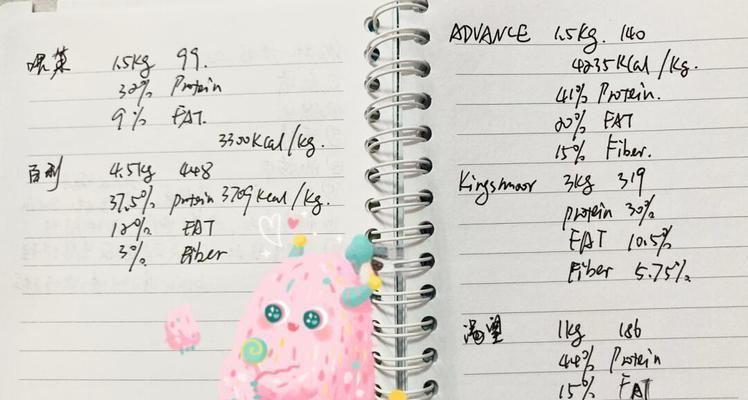 1.5kg 99.
32% Protein
9% FAT.
3300Kcal/kg.
百利 4.5kg 448
37.5% protein 3709Kcal/kg.
12% FAT
3% Fiber
ADVANCE 1.5kg. 140
4235Kcal/kg.
41% Protein.
20% FAT
15% Fiber.
Kingsmoor 3kg 319
protein 30%
FAT 10.5%
Fiber 5.75%
渴望 1kg 186
44% Protein
15% FAT